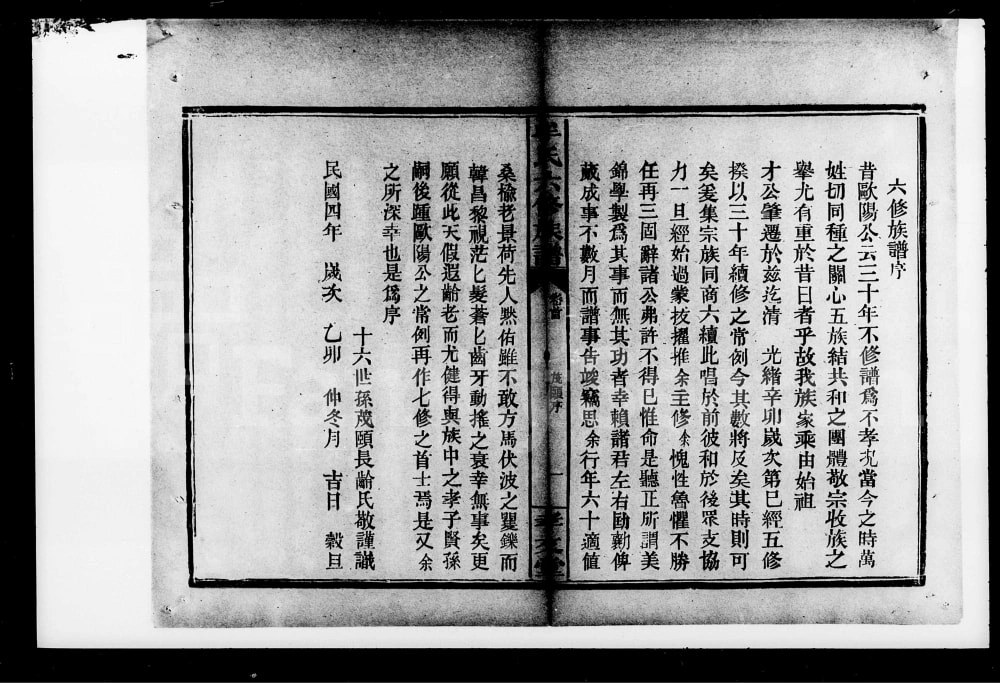 六修族譜序
昔歐陽公云三十年不修譜爲不孝況當今之時萬
姓切同種之關心五族結共和之團體敬宗收族之
舉尤有重於昔日者乎故我族家乘由始祖
才公肇遷於茲迄清　光緒辛卯歲次第已經五修
揆以三十年續修之常例今其數將及矣其時則可
矣爰集宗族同商六續此唱於前彼和於後眾支協
力一旦經始過蒙拔擢推余主修余愧性魯懼不勝
任再三固辭諸公弗許不得已惟命是聽正所謂美
錦學製爲其事而無其功者幸賴諸君左右勷勷俾
蕆成事不數月而譜事告竣竊思余行年六十適值
牟氏六修族譜
卷首
茂頤序
一
孝友堂
桑榆老景荷先人黙佑雖不敢方馬伏波之矍鑠而
韓昌黎視茫匕髮蒼匕齒牙動搖之衰幸無事矣更
願從此天假遐齡老而尤健得與族中之孝子賢孫
嗣後踵歐陽公之常例再作七修之首士焉是又余
之所深幸也是爲序
十六世孫茂頤長齡氏敬謹誠
民國四年　歲次　乙卯　仲冬月　吉日　穀旦